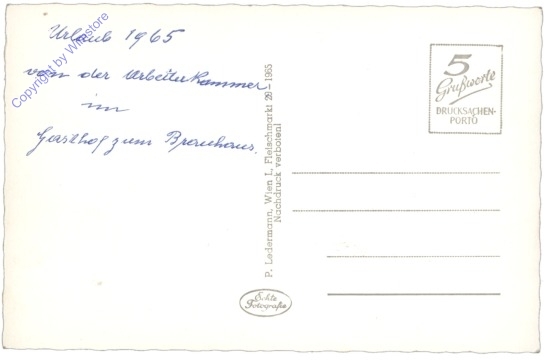 Urlaub 1965
von der Arbeiterkammer
im
Gasthof zum Brauhaus.
Copyright by Wihastore
P. Ledermann, Wien I., Fleischmarkt 26 – 1965
Nachdruck verboten!
5
Grußworte
DRUCKSACHEN-
PORTO
Echte
Fotografie